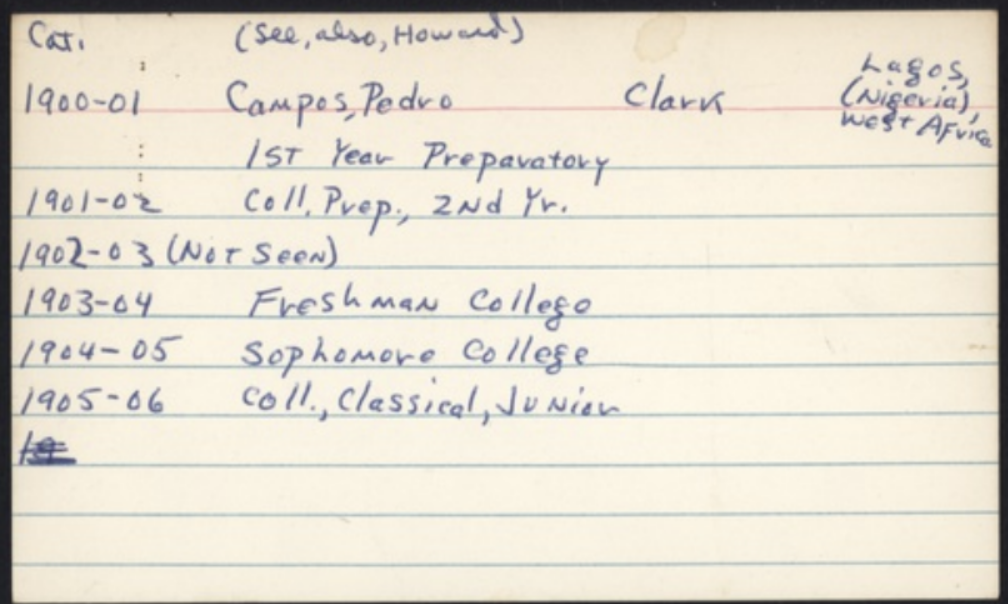 Cat. (See, also, Howard)
1900-01 Campos, Pedro Clark Lagos, (Nigeria), West Africa
1st Year Preparatory
1901-02 Coll. Prep., 2nd Yr.
1902-03 (Not Seen)
1903-04 Freshman College
1904-05 Sophomore College
1905-06 Coll., Classical, Junior